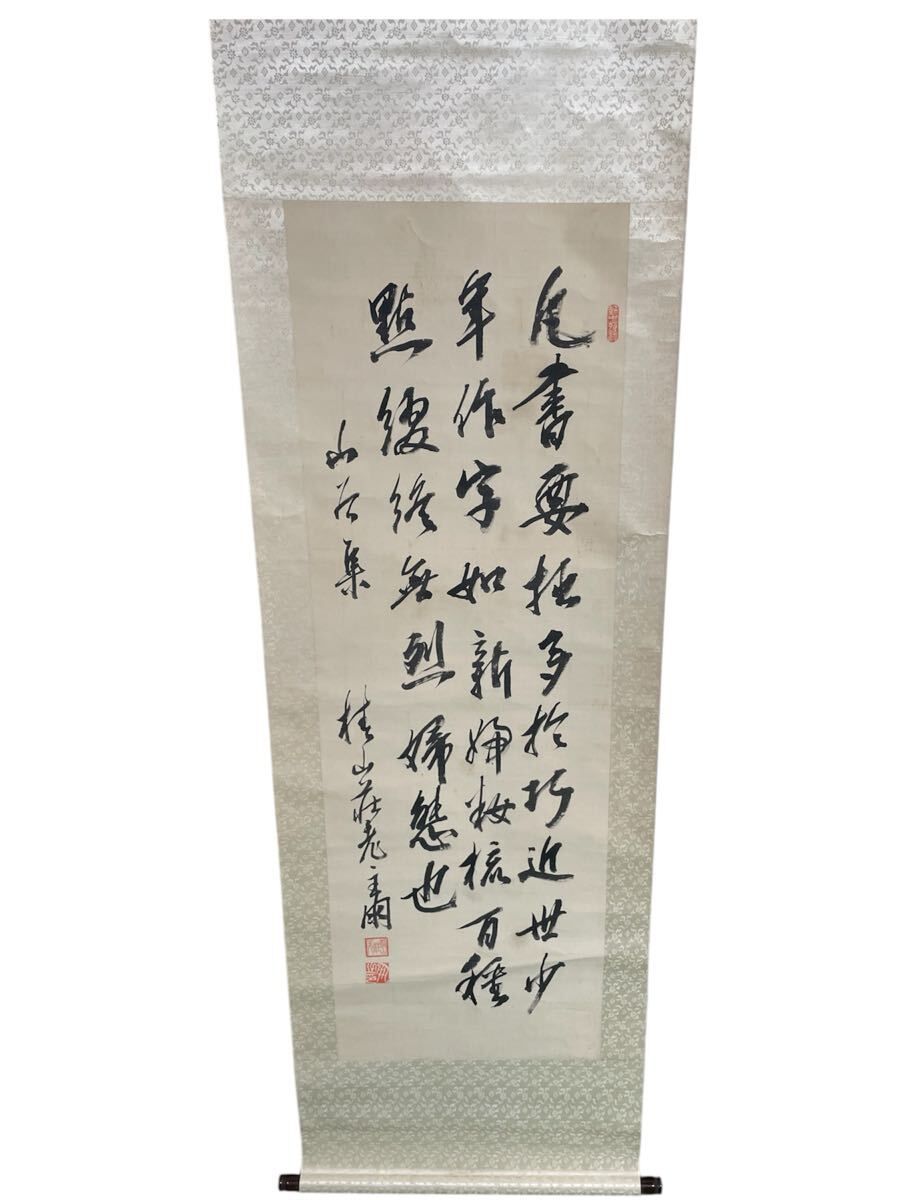 凡書要拙多於巧近世少
年作字如新婦妝梳百種
點綴終無烈婦態也
山谷集
桂山莊老主人